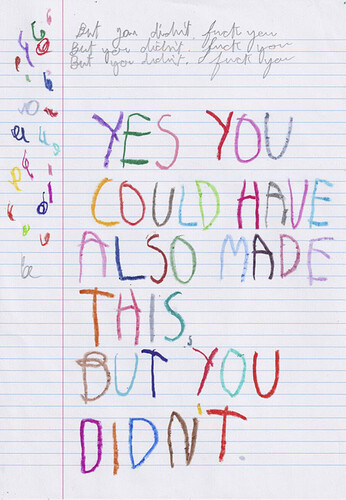 But you didn't. fuck you
But you didn't. fuck you
But you didn't. fuck you
YES YOU
COULD HAVE
ALSO MADE
THIS,
BUT YOU
DIDN'T.